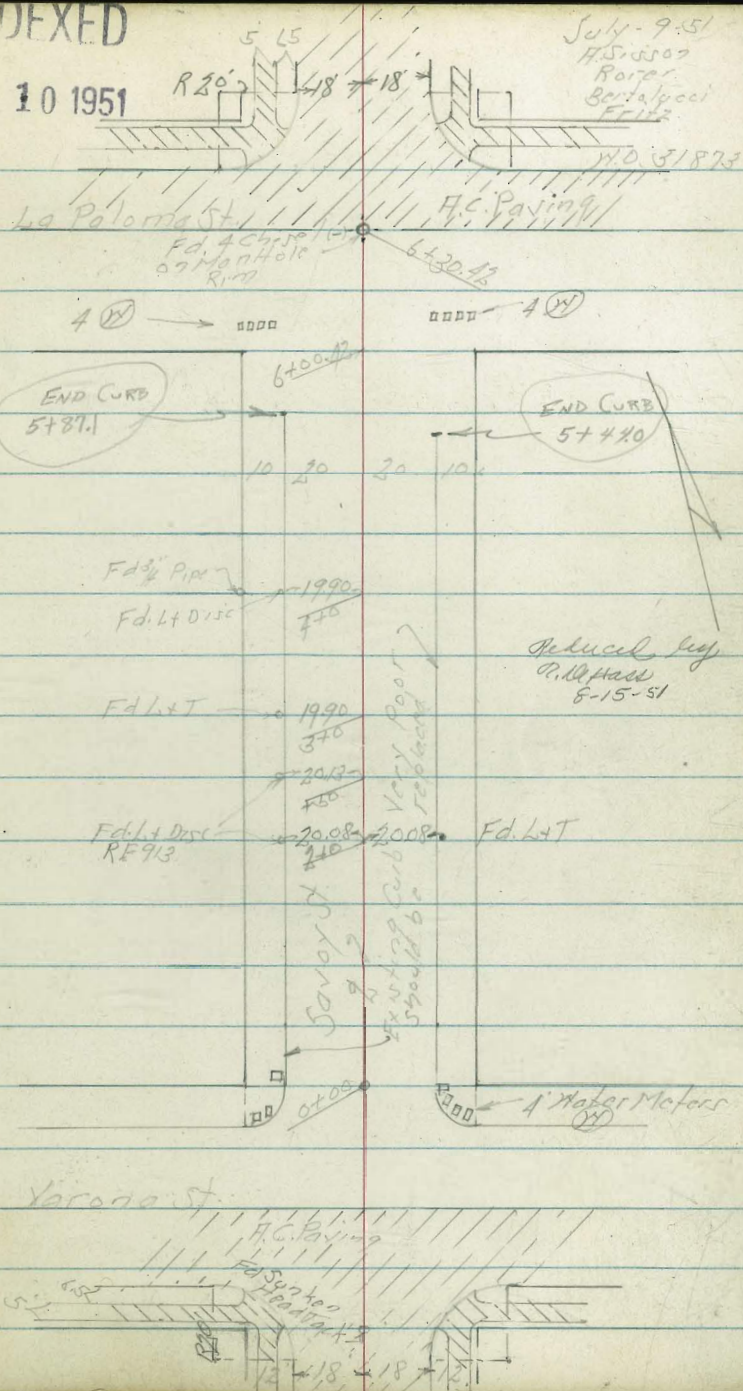 DEXED
10 1951
July-9-51
A Sisson
Rorer
Bertolucci
Fritz
W.O. 31873
5 15
R 20'
18' 18'
La Paloma St.
A.C. Paving
Fd. 4 Chisel
on Manhole
Rim
6+30.42
4 W
4 W
6+00.42
END CURB
5+87.1
END CURB
10 20 20 10
Fd 3/4 Pipe
Fd. L+Disc
19.90
Reduced by
8-15-51
Fd L+T
19.90
3+0
20.13
+50
Fd. L+Disc
RE 913
20.08
20.08
Fd. L+T
2+0
Savoy St
Existing Curb Very Poor
Should be replaced
0+00
4 Water Meters
W
Varona St.
A.C. Paving
Fd Sunken
R20
12 18 18 12